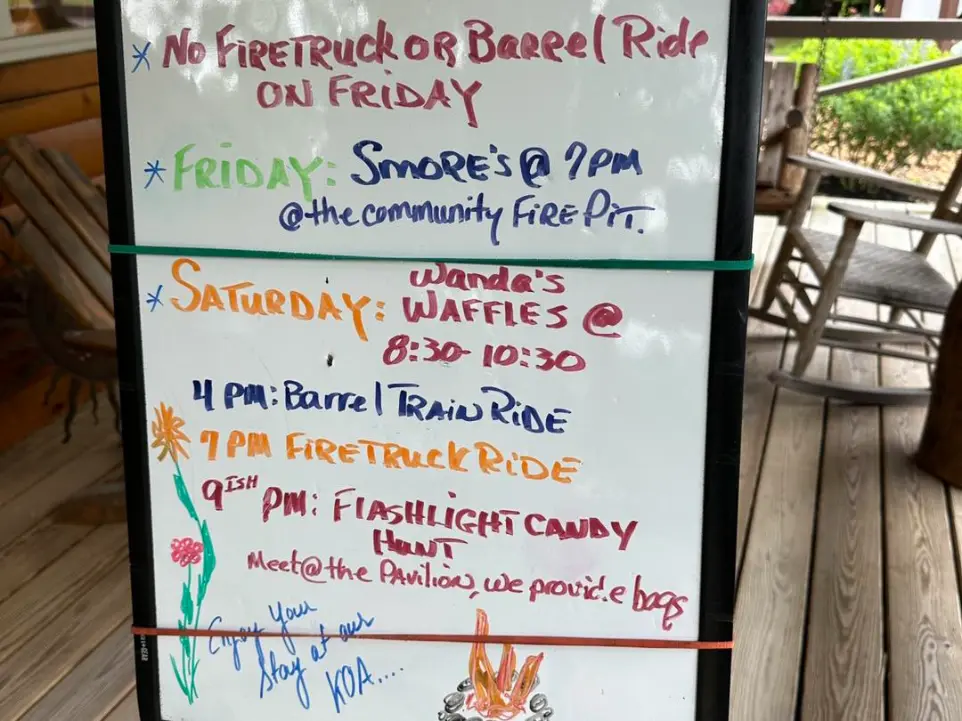 * No FIRETRUCK OR Barrel Ride
ON FRIDAY
* FRIDAY: SMORE'S @ 7PM
@the community FIRE PIT.
* SATURDAY: Wanda's
WAFFLES @
8:30-10:30
4 PM: Barrel TRAIN RIDE
7 PM FIRETRUCK RIDE
9ISH PM: FLASHLIGHT CANDY
HUNT
Meet@the Pavilion, we provide bags
Enjoy your
Stay at our
KOA...